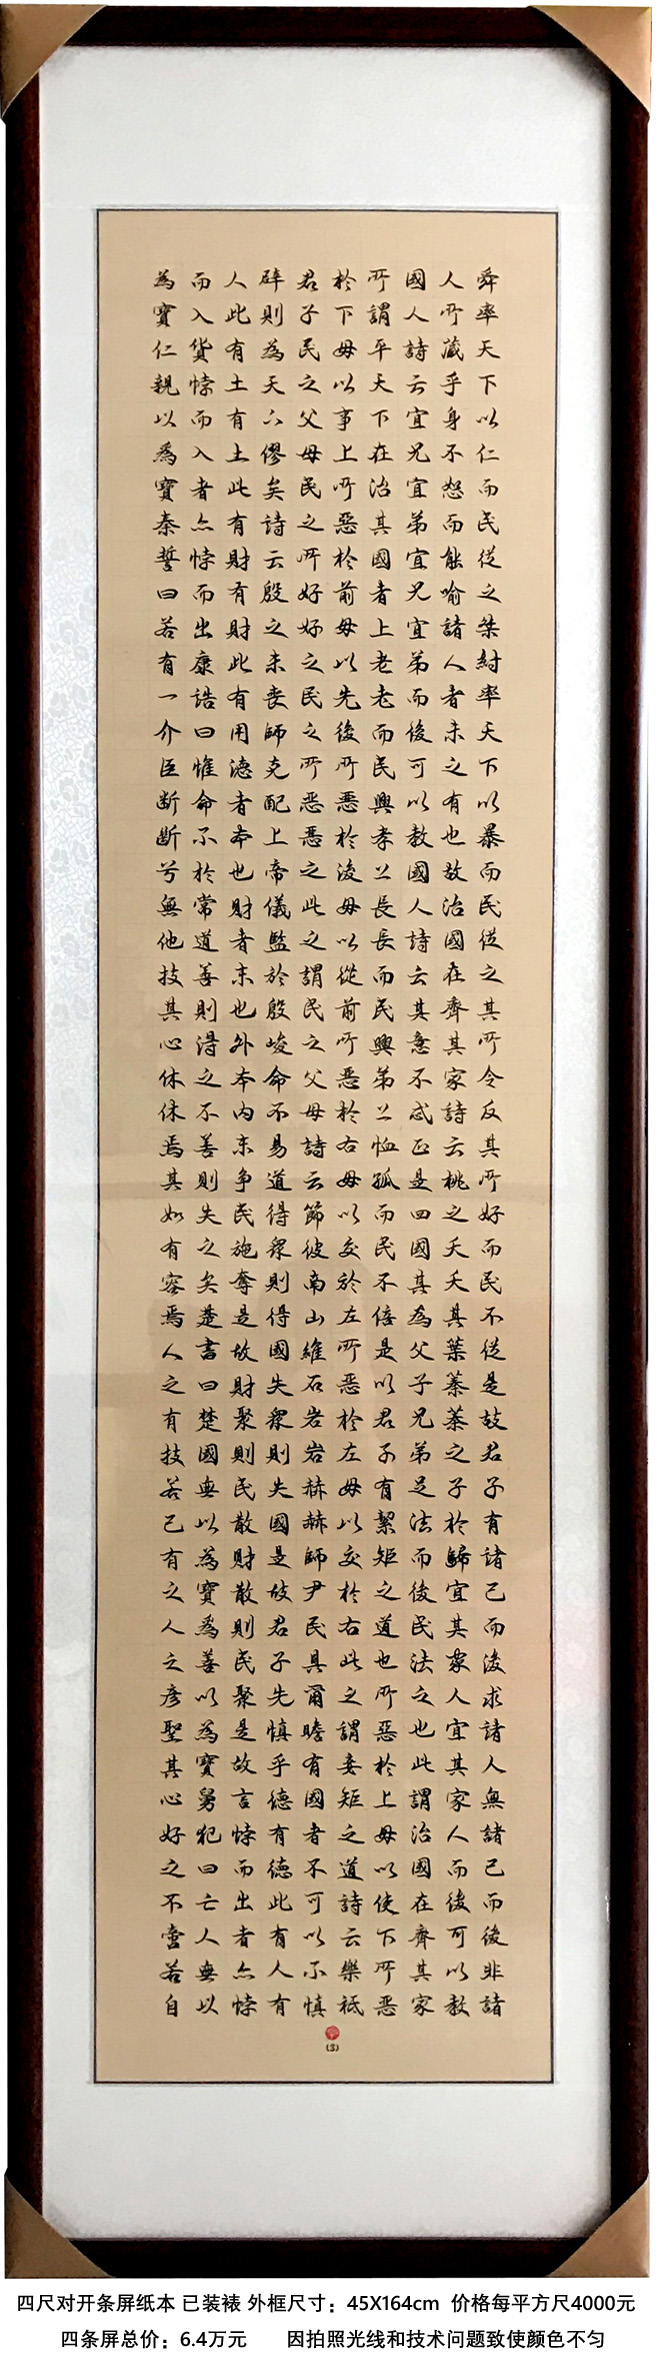 舜率天下以仁而民從之桀紂率天下以暴而民從之其所令反其所好而民不從是故君子有諸己而後求諸人無諸己而後非諸
人所藏乎身不恕而能喻諸人者未之有也故治國在齊其家詩云桃之夭夭其葉蓁蓁之子於歸宜其家人宜其家人而後可以教
國人詩云宜兄宜弟宜兄宜弟而後可以教國人詩云其意不忒正是四國其為父子兄弟足法而後民法之也此謂治國在齊其家
所謂平天下在治其國者上老老而民興孝上長長而民興弟上恤孤而民不倍是以君子有絜矩之道也所惡於上毋以使下所惡
於下毋以事上所惡於前毋以先後所惡於後毋以從前所惡於右毋以交於左所惡於左毋以交於右此之謂絜矩之道詩云樂祗
君子民之父母民之所好好之民之所惡惡之此之謂民之父母詩云節彼南山維石岩岩赫赫師尹民具爾瞻有國者不可以不慎
辟則為天下僇矣詩云殷之未喪師克配上帝儀監於殷峻命不易道得眾則得國失眾則失國是故君子先慎乎德有德此有人有
人此有土有土此有財有財此有用德者本也財者末也外本內末爭民施奪是故財聚則民散財散則民聚是故言悖而出者亦悖
而入貨悖而入者亦悖而出康誥曰惟命不於常道善則得之不善則失之矣楚書曰楚國無以為寶為善以為寶舅犯曰亡人無以
為寶仁親以為寶秦誓曰若有一介臣断断兮無他技其心休休焉其如有容焉人之有技若己有之人之彥聖其心好之不啻若自
(3)
四尺对开条屏纸本 已装裱 外框尺寸：45X164cm 价格每平方尺4000元
四条屏总价：6.4万元 因拍照光线和技术问题致使颜色不匀